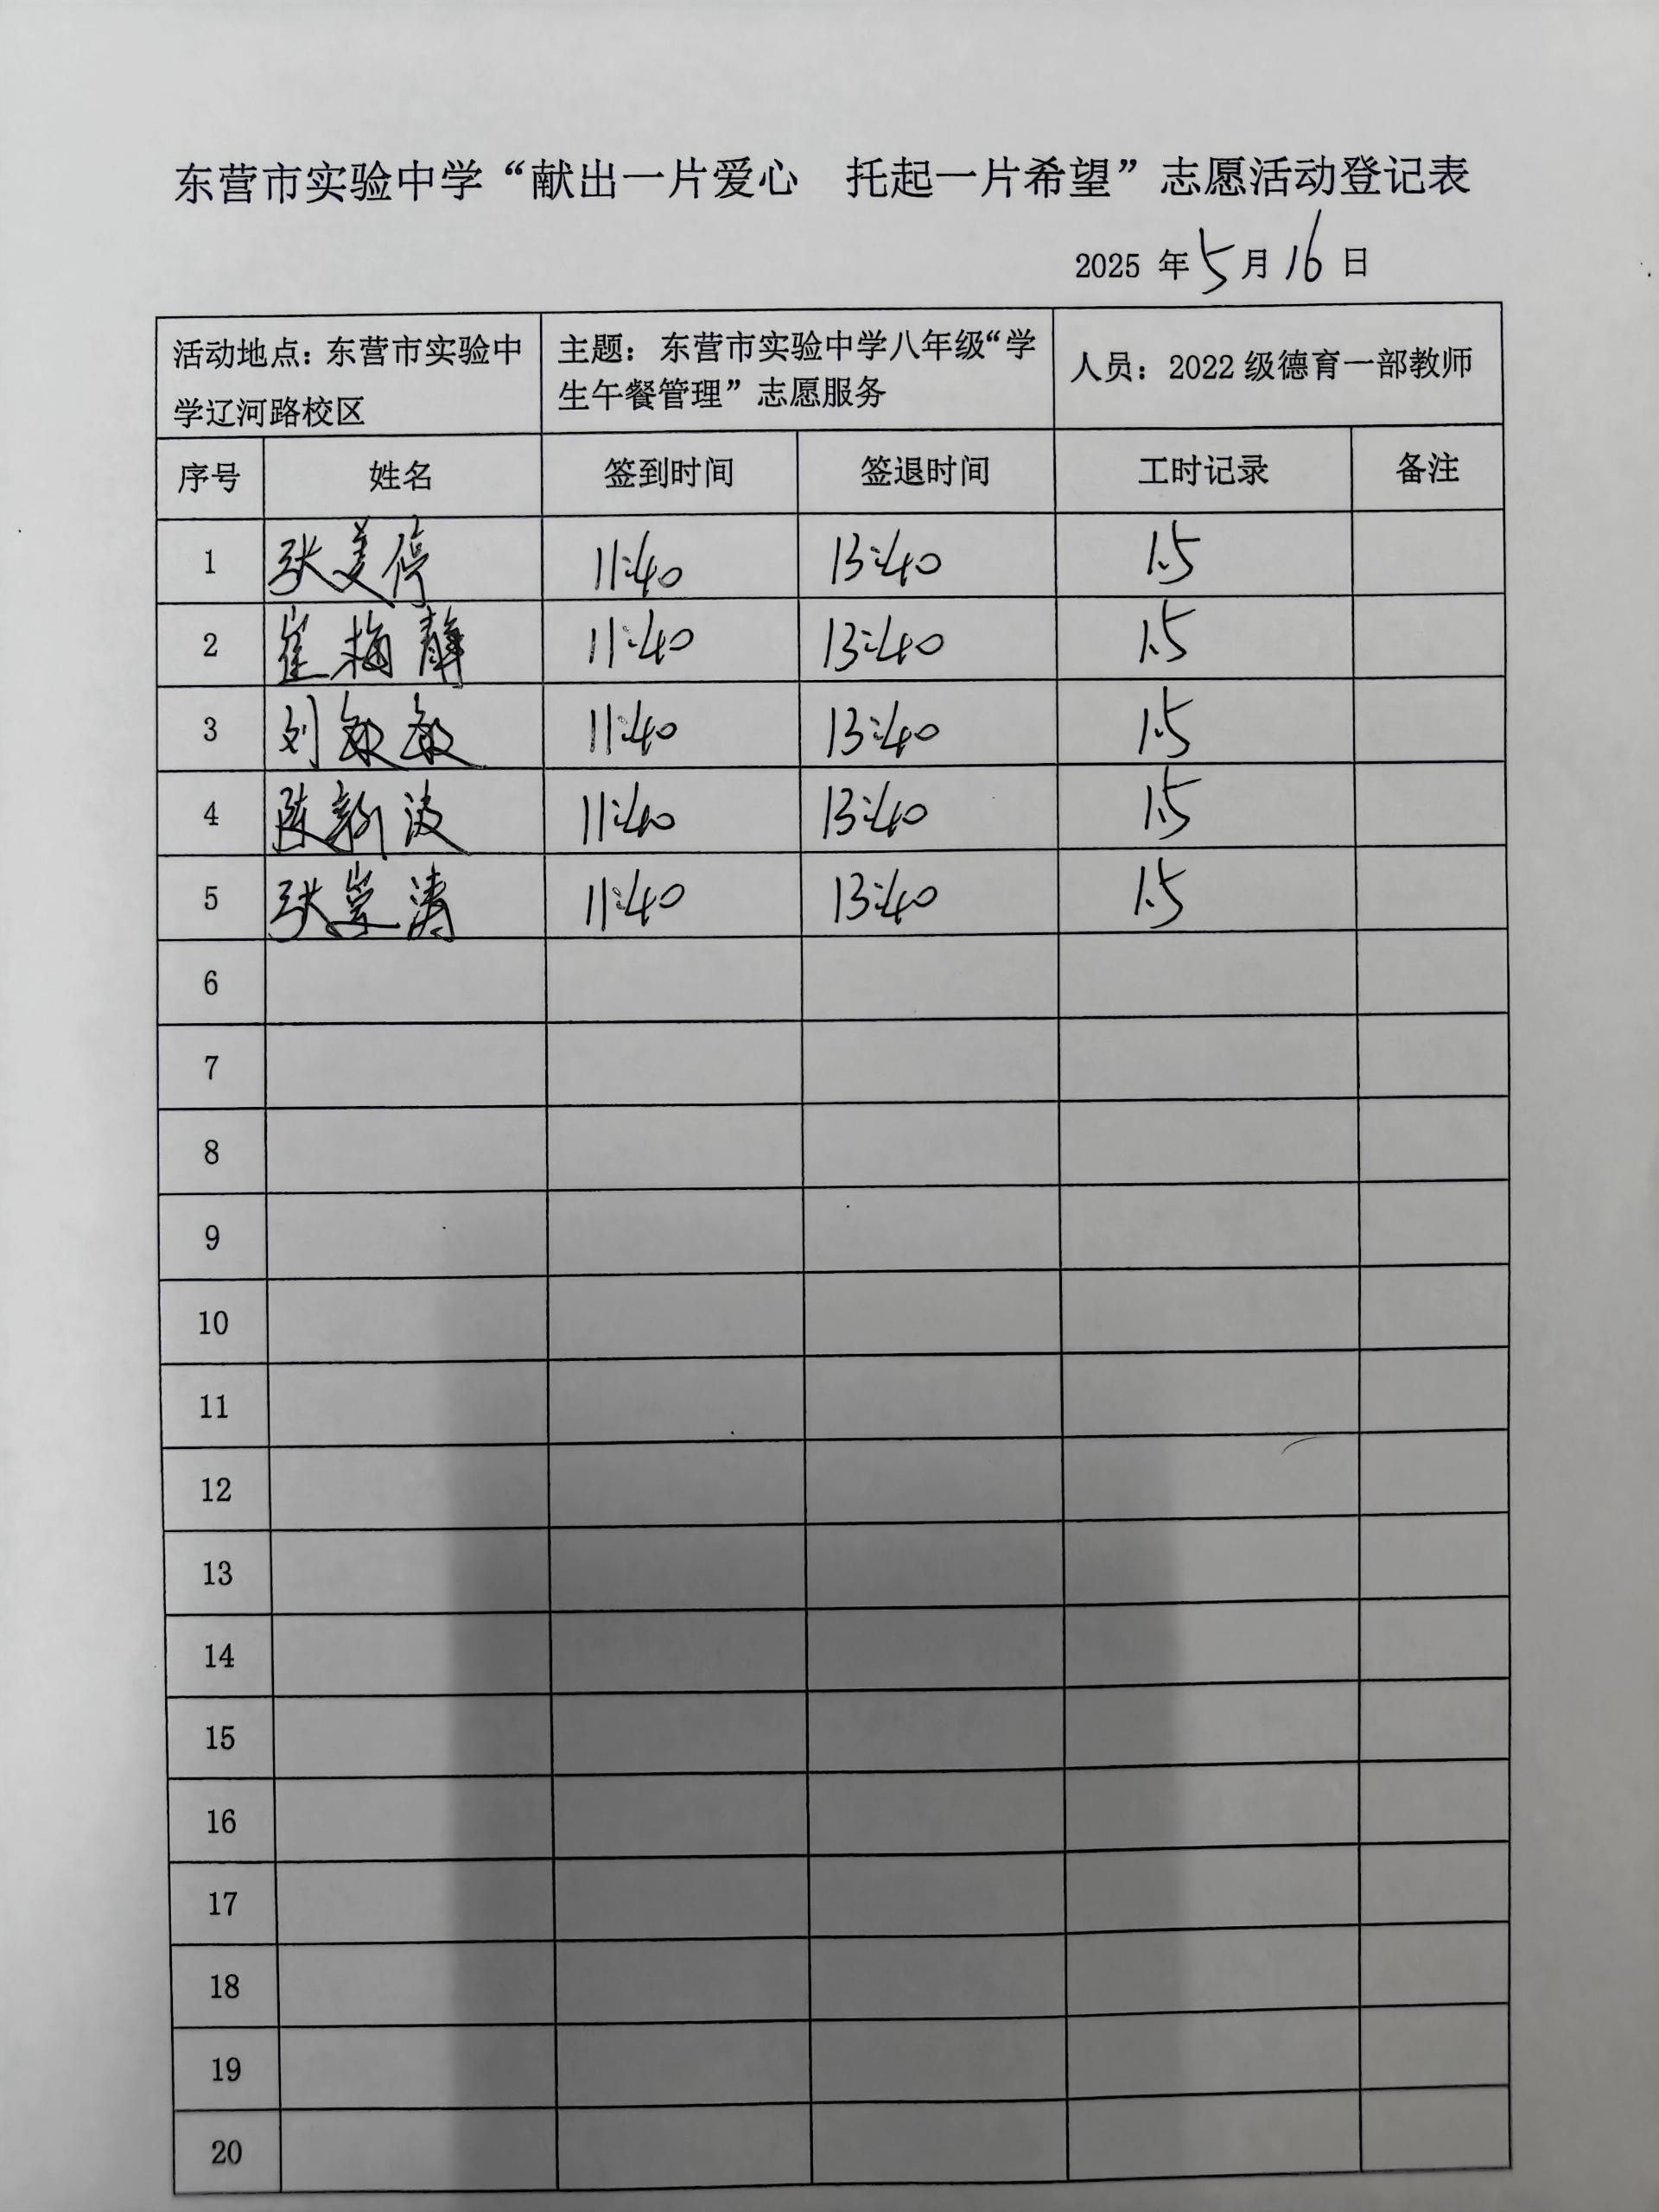 东营市实验中学“献出一片爱心 托起一片希望”志愿活动登记表
2025 年 5 月 16 日
活动地点：东营市实验中
学辽河路校区
主题： 东营市实验中学八年级“学
生午餐管理”志愿服务
人员：2022 级德育一部教师
序号 姓名 签到时间 签退时间 工时记录 备注
1 张美停 11:40 13:40 1.5
2 崔梅静 11:40 13:40 1.5
3 刘敏敏 11:40 13:40 1.5
4 陈新波 11:40 13:40 1.5
5 张 涛 11:40 13:40 1.5
6
7
8
9
10
11
12
13
14
15
16
17
18
19
20